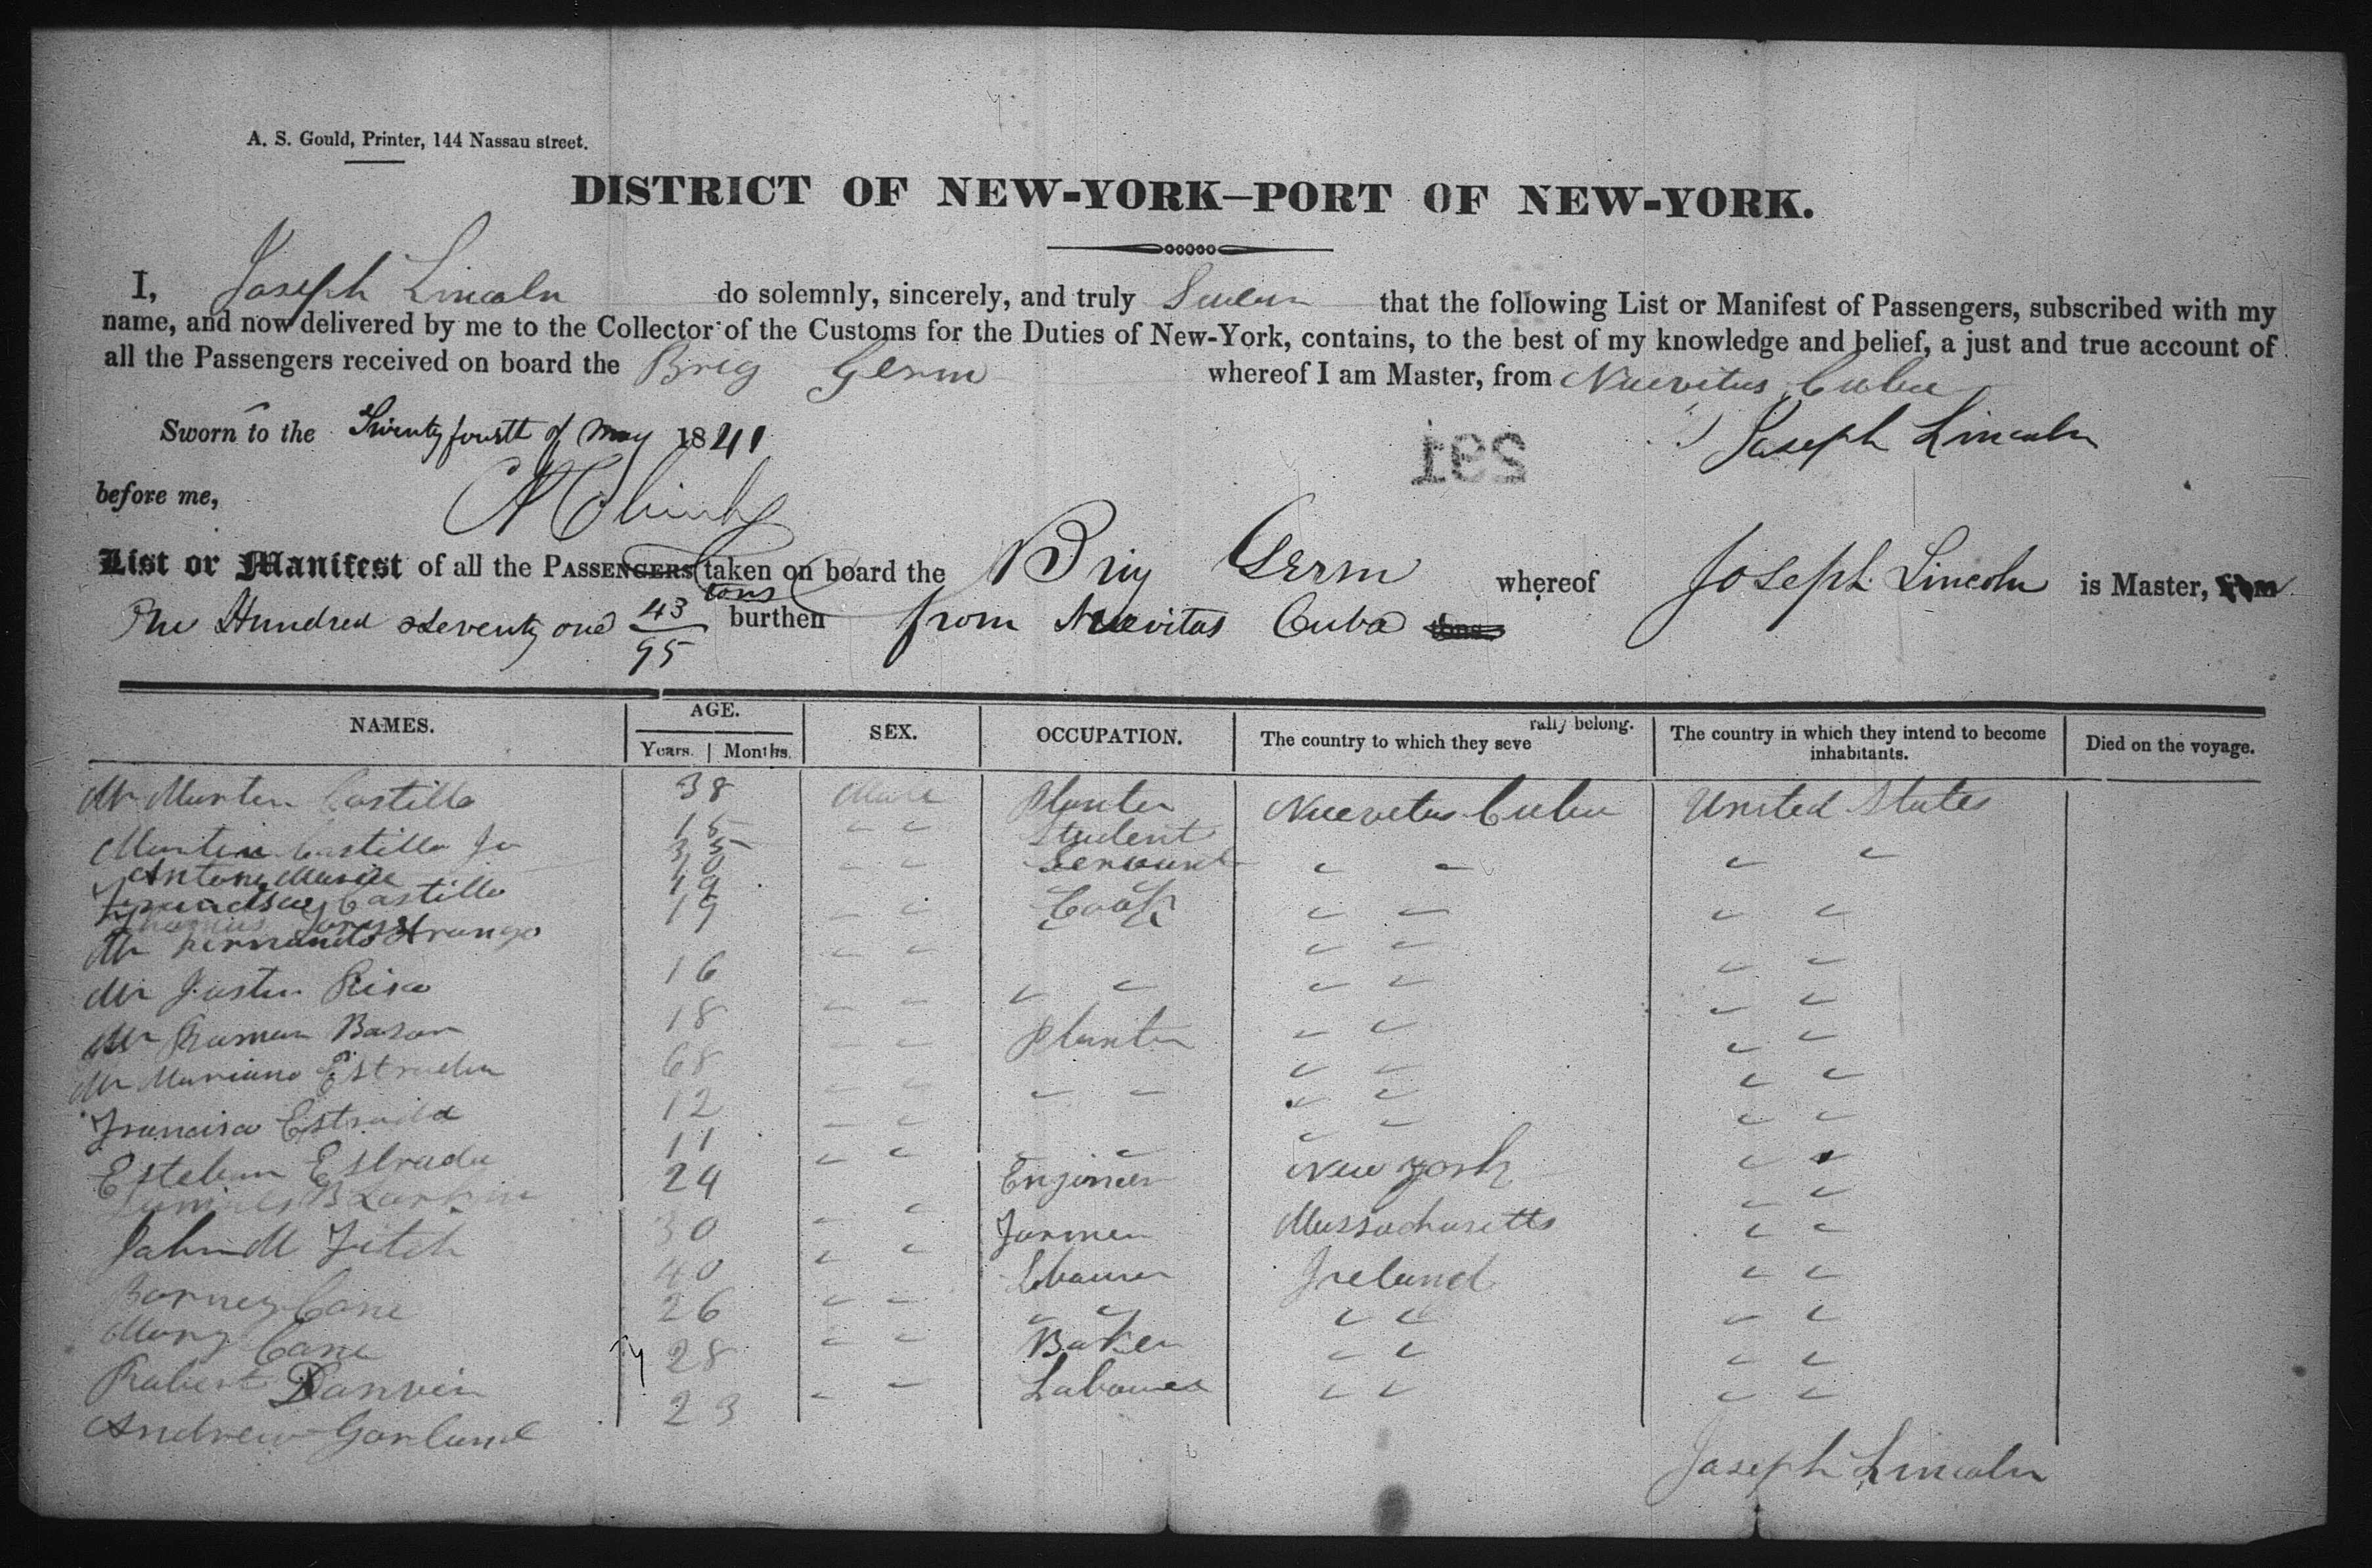 A. S. Gould, Printer, 144 Nassau street.
DISTRICT OF NEW-YORK—PORT OF NEW-YORK.
I, Joseph Lincoln do solemnly, sincerely, and truly Swear that the following List or Manifest of Passengers, subscribed with my
name, and now delivered by me to the Collector of the Customs for the Duties of New-York, contains, to the best of my knowledge and belief, a just and true account of
all the Passengers received on board the Brig Germ whereof I am Master, from Nuevitus Cuba
Sworn to the Twenty fourth of May 1841 Joseph Lincoln
before me,
List or Manifest of all the PASSENGERS taken on board the Brig Germ whereof Joseph Lincoln is Master, from
One Hundred & Seventy one 43/95 tons burthen from Nuevitas Cuba tons
NAMES. AGE. SEX. OCCUPATION. The country to which they severally belong. The country in which they intend to become inhabitants. Died on the voyage.
Years. Months.
Mr Martin Castillo 38 Male Planter Nuevetus Cuba United States
Martin Castillo Jr 15 " " Student
Antone Marice 35 " " Servant " " " "
Castillo 10
19 " " Cook " " " "
Mr Fernando Arango 19 " " " " " "
Mr Justin Risa 16 " " " " " " " "
Mr Ramon Bazan 18 " " Planter " " " "
Mr Mariano Estrada 68 " " " " " " " "
Francisco Estrada 12 " " " " " "
Esteban Estrada 11 " " " " " " " "
B Larkin 24 " Engineer New York " "
John M Fitch 30 " " Farmer Massachusetts " "
Barney Cane 40 " " Ireland " "
Mary Cane 26 " " " " " " " "
Robert Danvin 28 " " Baker " " " "
Andrew Garland 23 " " Labourer " " " "
Joseph Lincoln